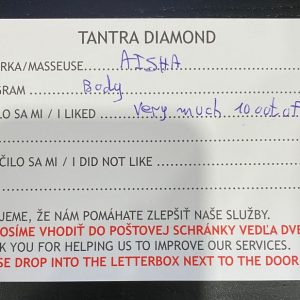 TANTRA DIAMOND
RKA/MASSEUSE AISHA
GRAM Body
LO SA MI / I LIKED very much 10 out of
ČILO SA MI / I DID NOT LIKE
UJEME, ŽE NÁM POMÁHATE ZLEPŠIŤ NAŠE SLUŽBY.
OSÍME VHODIŤ DO POŠTOVEJ SCHRÁNKY VEDĽA DVE
K YOU FOR HELPING US TO IMPROVE OUR SERVICES.
SE DROP INTO THE LETTERBOX NEXT TO THE DOOR